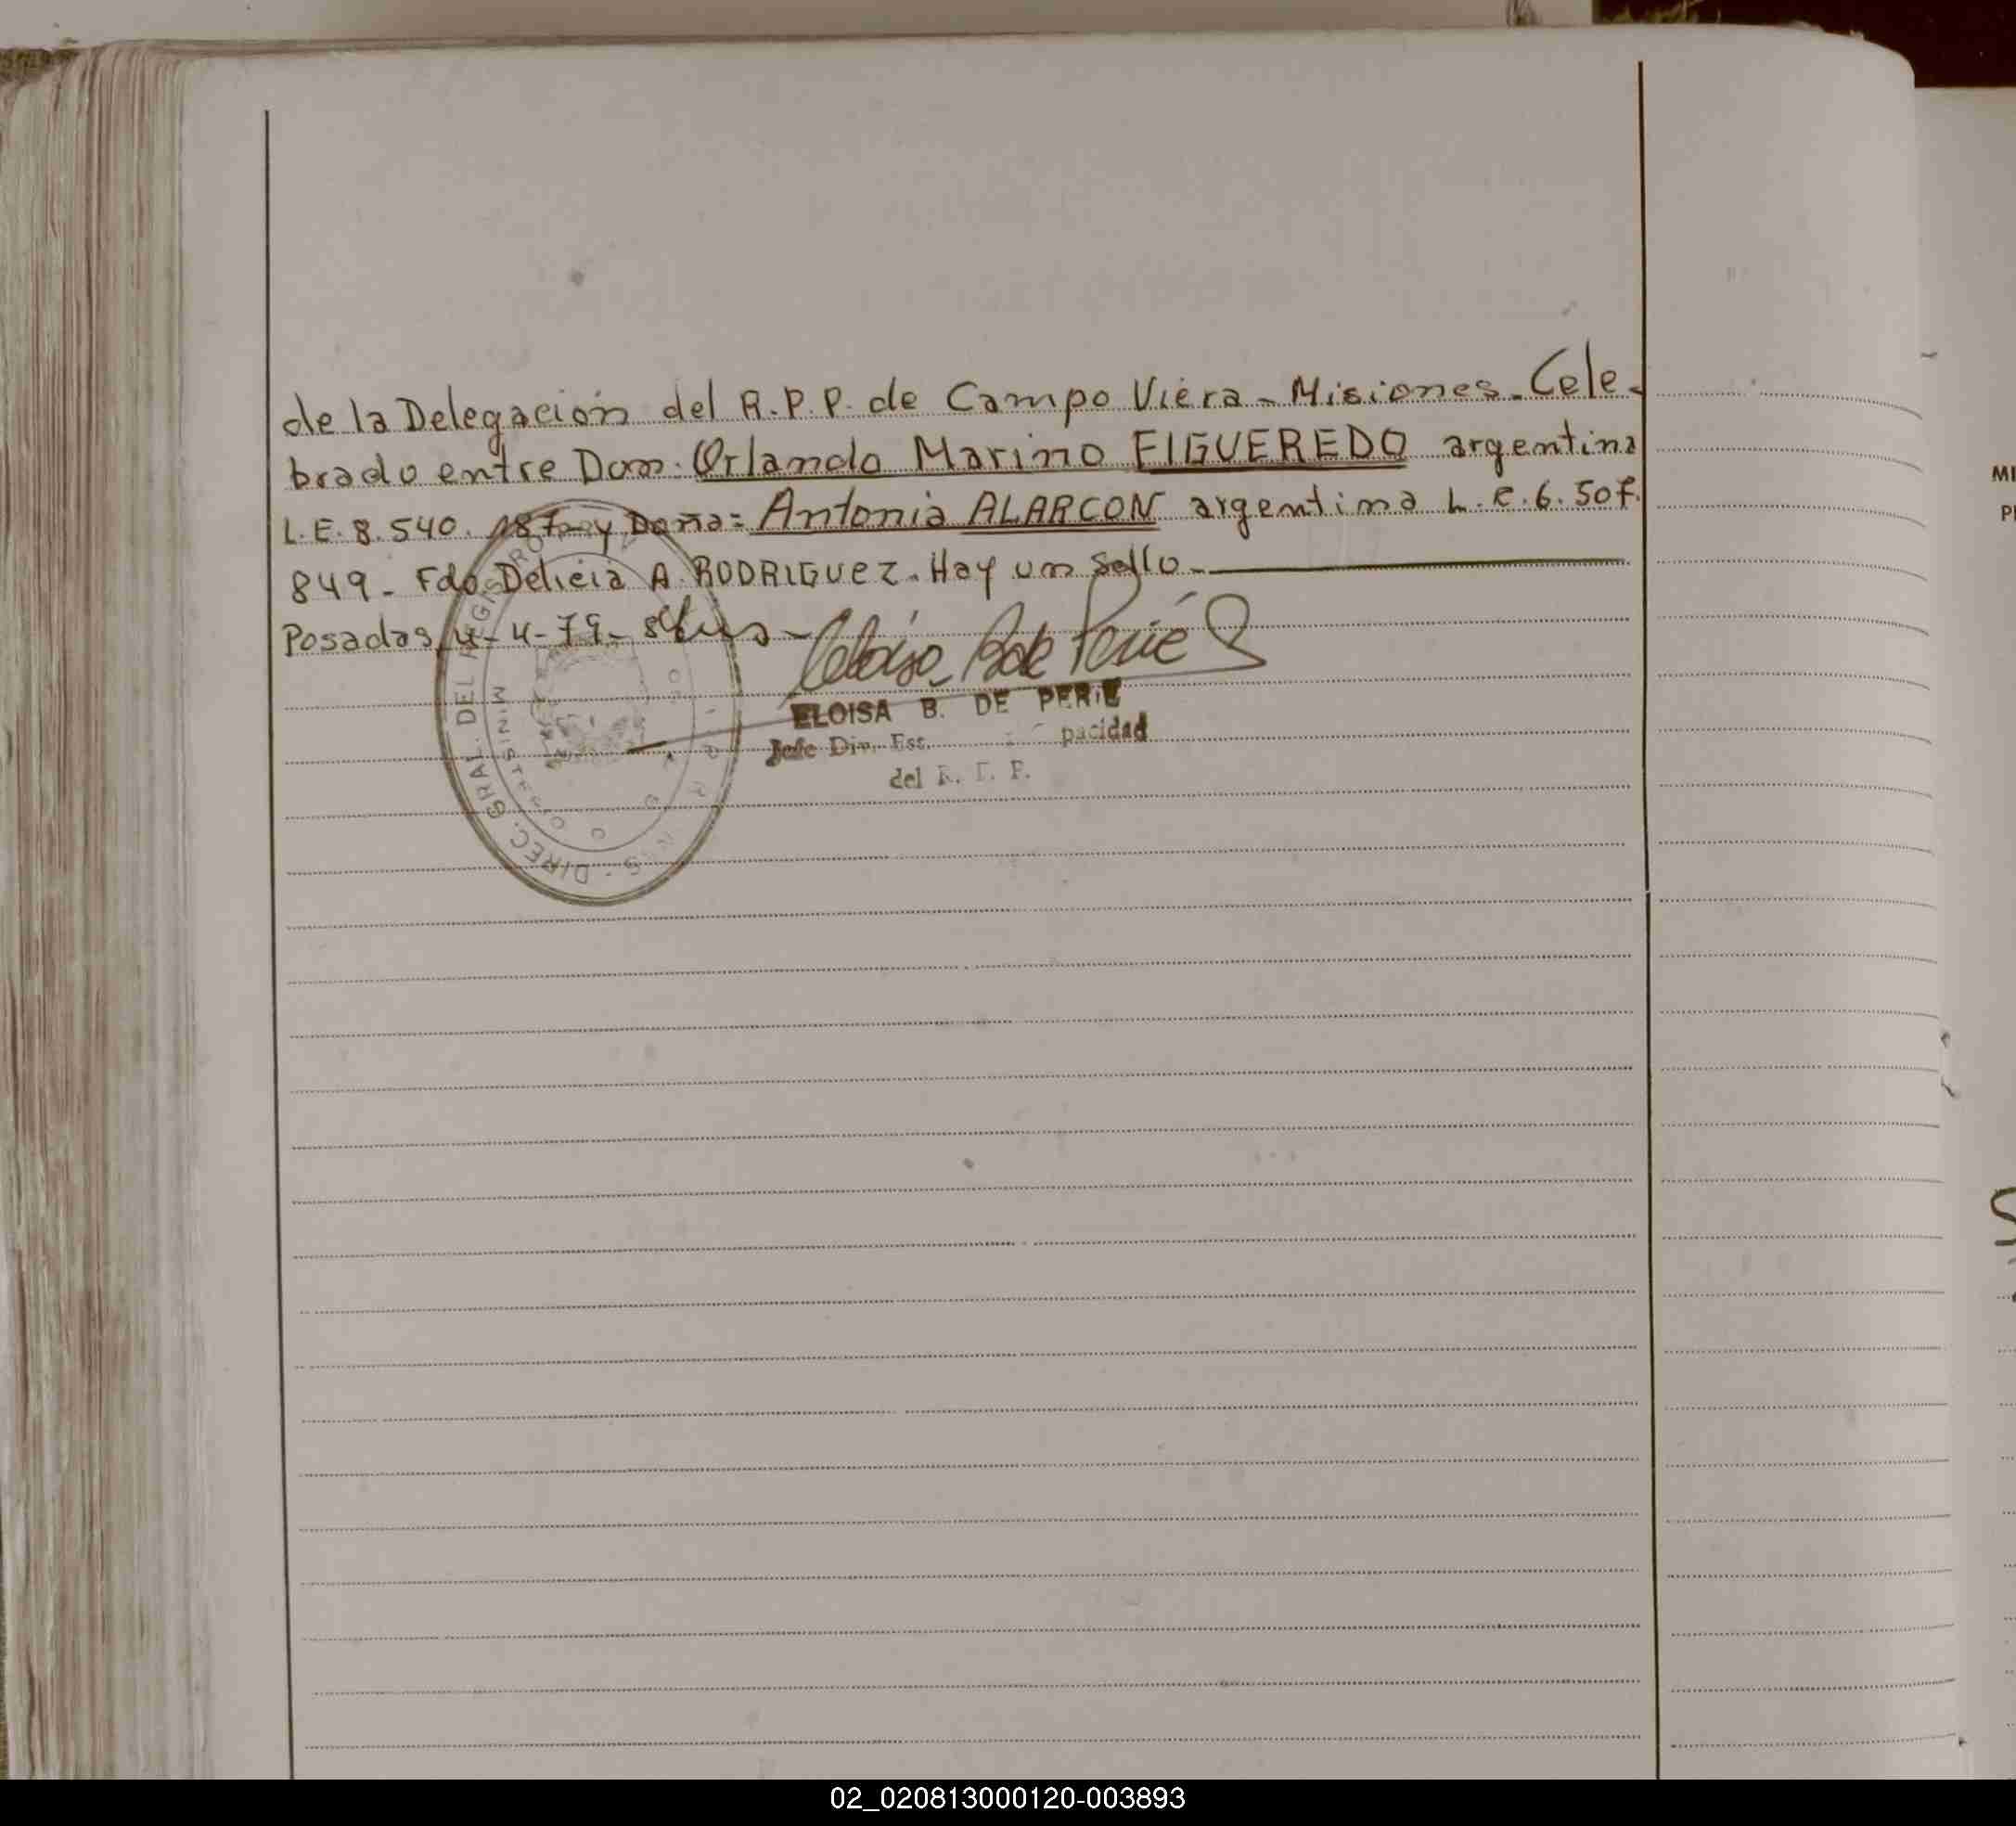 de la Delegación del R.P.P. de Campo Viera - Misiones. Cele-
brado entre Don. Orlando Marino FIGUEREDO argentino
L.E. 8.540. 187- y Doña= Antonia ALARCON argentina L.C. 6.507.
849 - Fdo Delicia A. RODRIGUEZ. Hay un Sello.
Posadas, 4-4-79-
ELOISA B. DE PERIE
Jefe Div. Est. pacidad
del R. P.
DIREC. GRAL. DEL REGISTRO
MINISTERIO
02_020813000120-003893